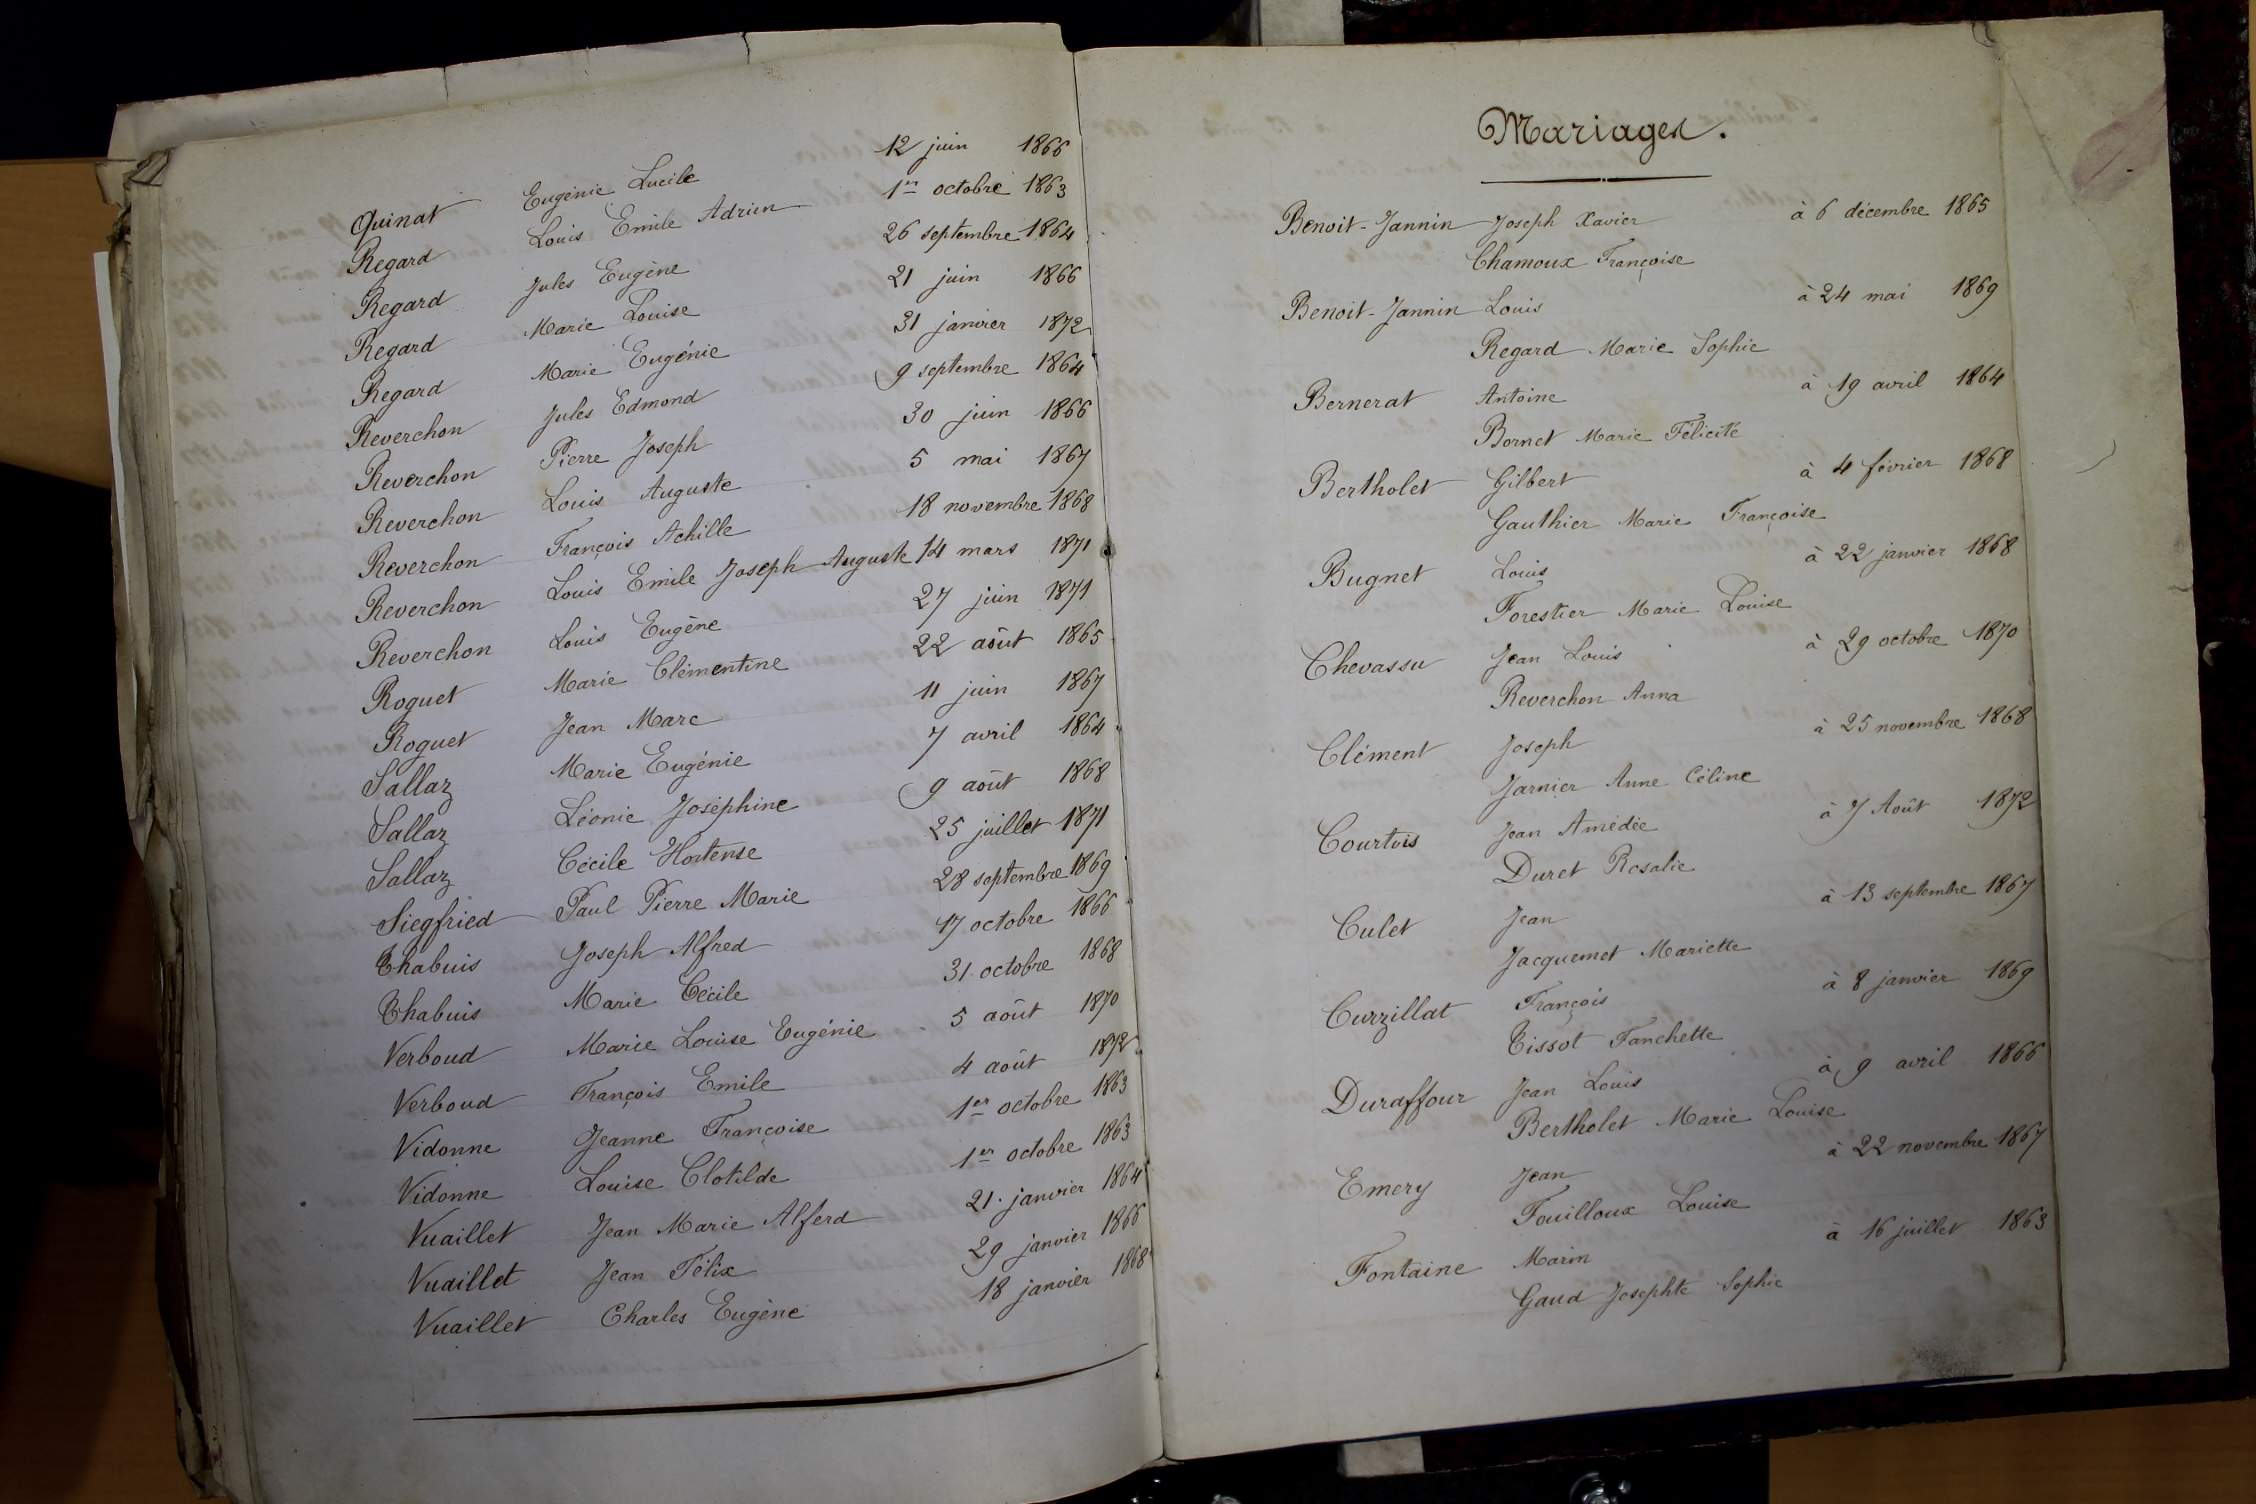 Quinat Eugénie Lucile 12 juin 1866
Regard Louis Emile Adrien 1er octobre 1863
Regard Jules Eugène 26 septembre 1864
Regard Marie Louise 21 juin 1866
Regard Marie Eugénie 31 janvier 1872
Reverchon Jules Edmond 9 septembre 1864
Reverchon Pierre Joseph 30 juin 1866
Reverchon Louis Auguste 5 mai 1867
Reverchon François Achille 18 novembre 1868
Reverchon Louis Emile Joseph Auguste 14 mars 1871
Reverchon Louis Eugène 27 juin 1871
Roguet Marie Clémentine 22 août 1865
Roguet Jean Marc 11 juin 1867
Sallaz Marie Eugénie 7 avril 1864
Sallaz Léonie Joséphine 9 août 1868
Sallaz Cécile Hortense 25 juillet 1871
Siegfried Paul Pierre Marie 28 septembre 1869
Thabuis Joseph Alfred 17 octobre 1866
Thabuis Marie Cécile 31 octobre 1868
Verboud Marie Louise Eugénie 5 août 1870
Verboud François Emile 4 août 1872
Vidonne Jeanne Françoise 1er octobre 1863
Vidonne Louise Clotilde 1er octobre 1863
Vuaillet Jean Marie Alferd 21 janvier 1864
Vuaillet Jean Félix 29 janvier 1866
Vuaillet Charles Eugène 18 janvier 1868
Mariages.
Benoit-Jannin Joseph Xavier à 6 décembre 1865
Chamoux Françoise
Benoit-Jannin Louis à 24 mai 1869
Regard Marie Sophie
Bernerat Antoine à 19 avril 1864
Bornet Marie Félicité
Bertholet Gilbert à 4 février 1868
Gauthier Marie Françoise
Bugnet Louis à 22 janvier 1868
Forestier Marie Louise
Chevassu Jean Louis à 29 octobre 1870
Reverchon Anna
Clément Joseph à 25 novembre 1868
Jarnier Anne Céline
Courtois Jean Amédée à 7 Août 1872
Duret Rosalie
Culet Jean à 13 septembre 1867
Jacquemet Mariette
Curzillat François à 8 janvier 1869
Tissot Fanchette
Duraffour Jean Louis à 9 avril 1866
Bertholet Marie Louise
Emery Jean à 22 novembre 1867
Fouilloux Louise
Fontaine Marin à 16 juillet 1863
Gaud Josephte Sophie